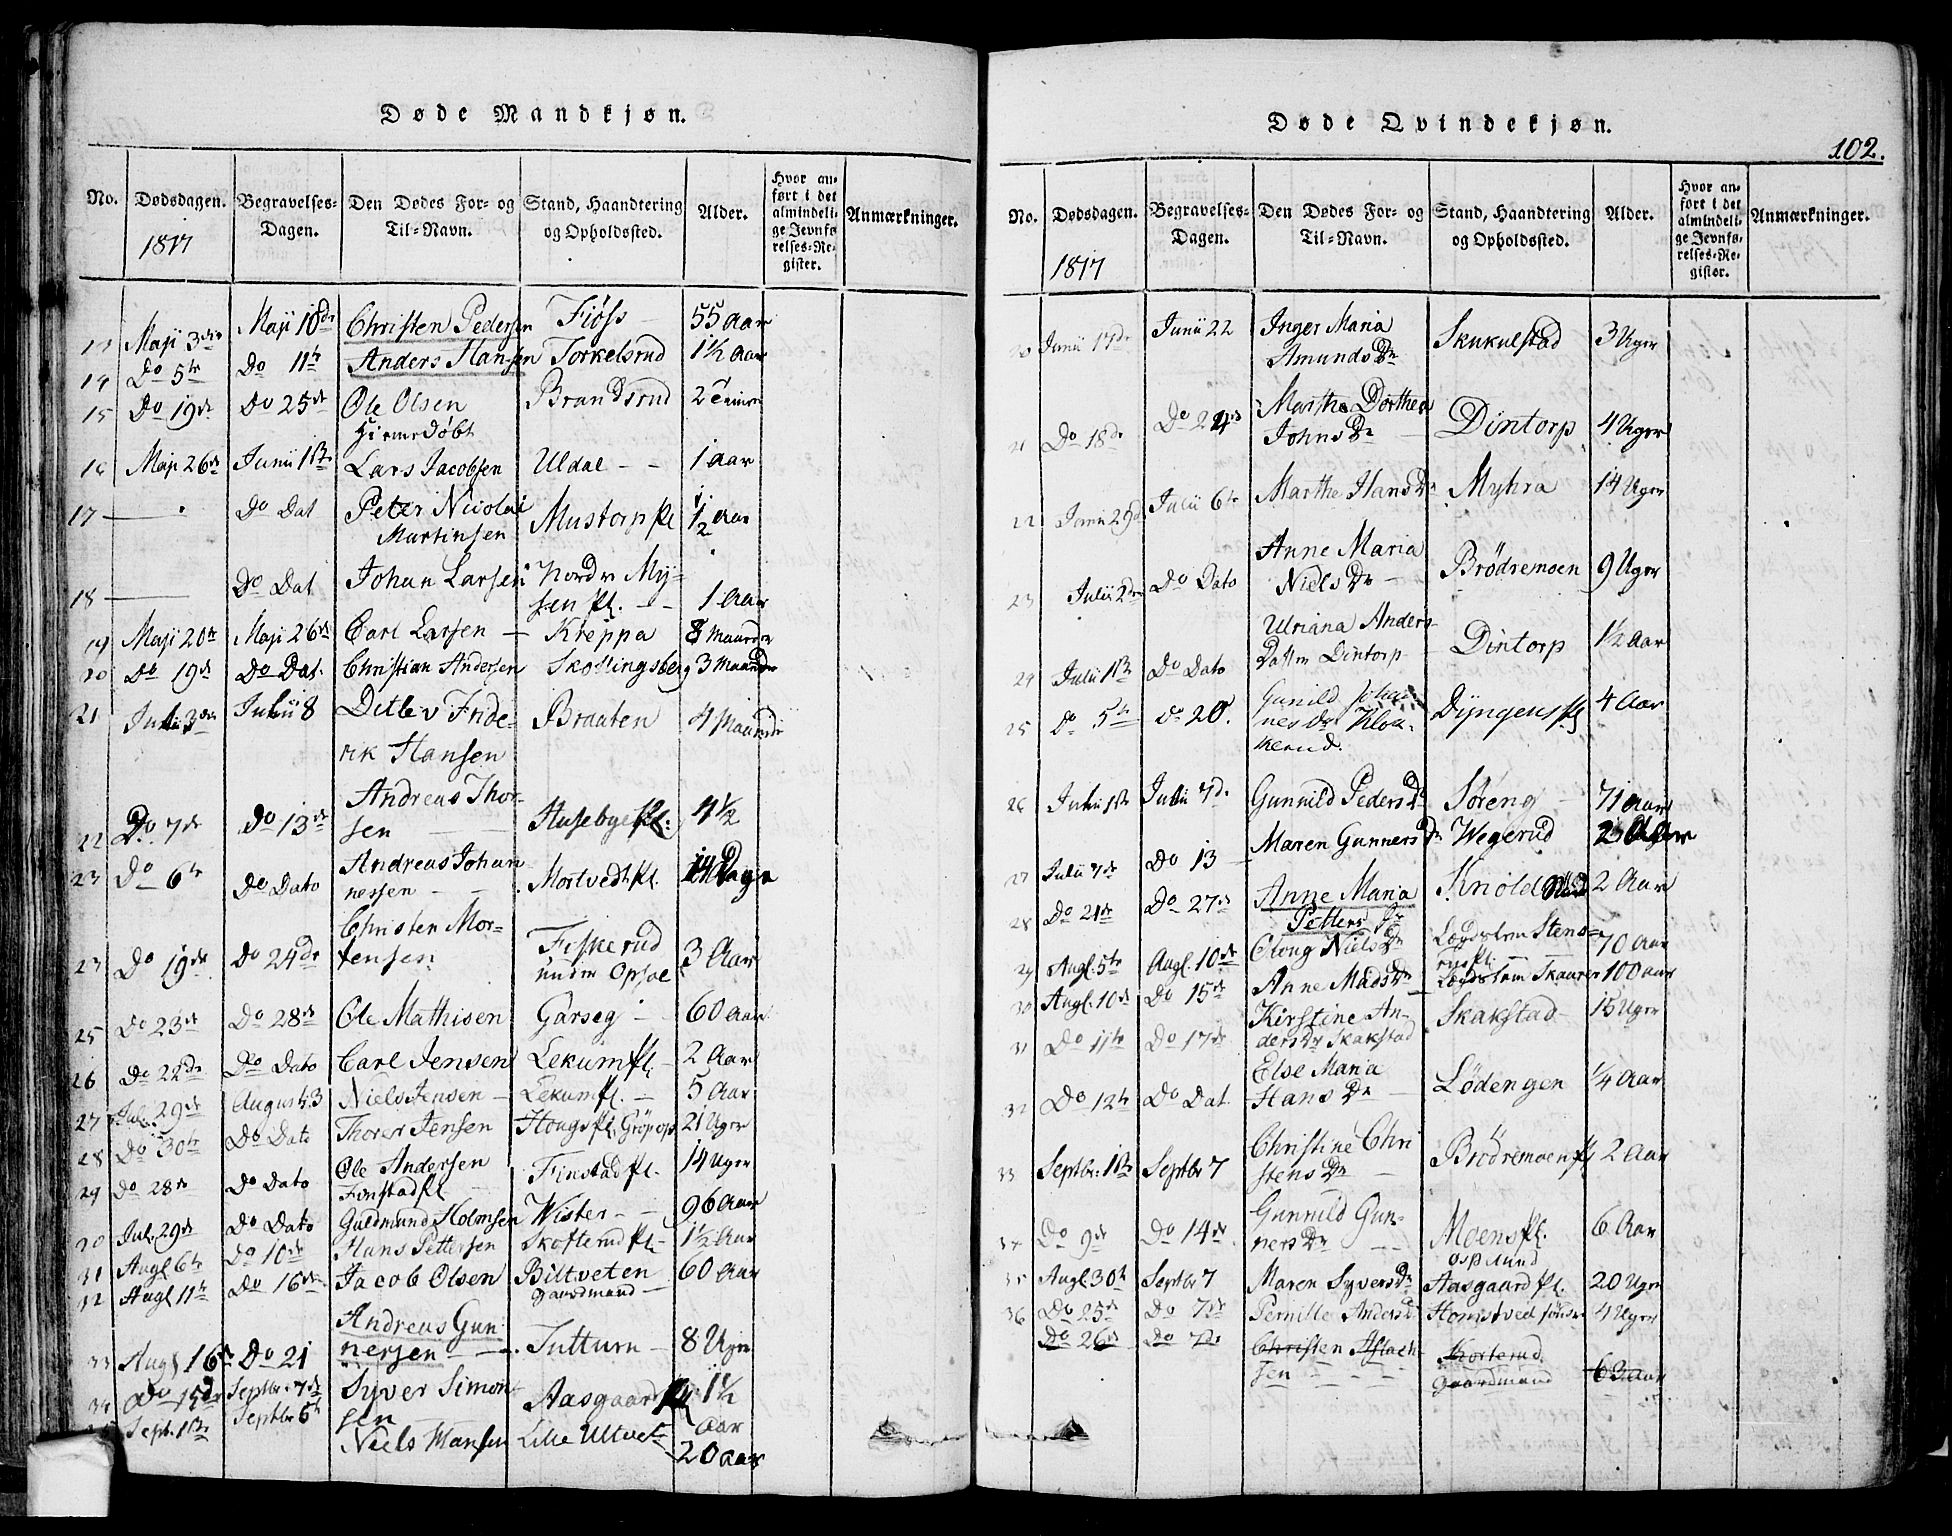 Døde Mandkjøn.
No. Dødsdagen. 1817 Begravelses-Dagen. Den Dødes For- og Til-Navn. Stand, Haandtering og Opholdssted. Alder. Hvor anført i det almindelige Jevnførelses-Register. Anmærkninger.
13 Maji 3die Maji 18de Christen Pedersen Fiøss 55 Aar
14 Do 5te Do 11te Anders Hansen Torkelsrud 1½ Aar
15 Do 19de Do 25de Ole Olsen Brandsrud 2 Timer
Hiemedøbt
16 Maji 26de Junii 1ste Lars Jacobsen Uldal 1 aar
17 Do Dat Peter Nicolai Mustorp Pl ½ Aar
Martinsen
18 Do Dat Johan Larsen Nordre My-
sen Pl. 1 Aar
19 Maji 20de Maji 26de Carl Larsen Kreppa 8 Maaneder
20 Do 19de Do Dat. Christian Andersen Skollingsberg 3 Maaneder
21 Julii 3die Julii 8 Ditlev Fride- Braaten 4 Maaneder
rik Hansen
22 Do 7de Do 13de Andreas Thor-
sen Husebye Pl. 4½
23 Do 6te Do Dato Andreas Johan-
nessen Mortvedt Pl. 14 Dage
23 Do 19de Do 24de Christen Mor-
tensen Fiskerud 3 Aar
under Opsal
25 Do 23de Do 28de Ole Mathisen Garseg 60 Aar
26 Do 22de Do Dato Carl Jensen Lekum Pl. 2 Aar
27 Jul. 29de August 3 Niels Jensen Lekum Pl. 5 Aar
28 Do 30te Do Dato Thorer Jensen Hougs Pl. 21 Uger
29 Do 28de Do Dato Ole Andersen Finstad Pl. 14 Uger
Finstad Pl
30 Jul. 29de Do Dato Guldmund Holmsen Wister 96 Aar
31 Augl 6te Do 10de Hans Pettersen Skofterud Pl 1½ Aar
32 Augl 11te Do 16de Jacob Olsen Biltveten 60 Aar
gaardmand
33 Augl 16de Do 21 Andreas Gun-
nersen Tutturn 8 Uger
34 Do 15de Septbr. 7de Syver Simon-
sen Aasgaard Pl 1½
Aar
Sept. 1ste Septbr 6te Niels Hansen Lille Ultvet 20 Aar
Døde Qvindekjøn.
102.
No. Dødsdagen. 1817 Begravelses-Dagen. Den Dødes For- og Til-Navn. Stand, Haandtering og Opholdssted. Alder. Hvor anført i det almindelige Jevnførelses-Register. Anmærkninger.
20 Junii 17de Junii 22 Inger Maria Skukulstad 3 Uger
Amunds Dr
21 Do 18de Do 24de Marthe Dorthea Dintorp 4 Uger
Johns Dr
22 Junii 29de Julii 6te Marthe Hans Dr Myhra 14 Uger
23 Julii 2den Do Dato Anne Maria Brödremoen 9 Uger
Niels Dr
24 Julii 1ste Do Dato Ulriana Anders- Dintorp 1½ Aar
Datter Dintorp
25 Do 5te Do 20. Gunild Johan-
nes Dr Dyngens Pl 4 Aar
26 Julii 1ste Julii 7de Gunnild Peders Dr Søreng 71 Aar
27 Julii 7de Do 13 Maren Gunners Dr Wegerud 2 Uger
28 Do 21de Do 27de Anne Maria Knold 2 Aar
Petters Dr
29 Augl. 5te Augl. 10de Eloug Niels Dr Lægdslem Stens-
rus Pl. 70 Aar
30 Augl. 10de Do 15de Anne Mads Dr Lægdslem Skaurer 100 Aar
31 Do 11te Do 17de Kirstine An-
ders Dr Skakstad Skakstad 15 Uger
32 Do 12te Do Dat. Else Maria
Hans Dr Lødengen ¼ Aar
33 Septbr. 1ste Septbr 7 Christine Chri
stens Dr Brödremoen Pl 2 Aar
34 Do 9de Do 14de Gunnild Gun-
ners Dr Moens Pl. 6 Aar
35 Augl. 30te Septbr 7 Maren Syvers Dr Aasgaard Pl. 20 Uger
36 Do 25de Do 7de Pernille Anders D Homstved søndre 4 Uger
Do 26de Do 7de Christen Aslach-
sen gaardmand 63 Aar